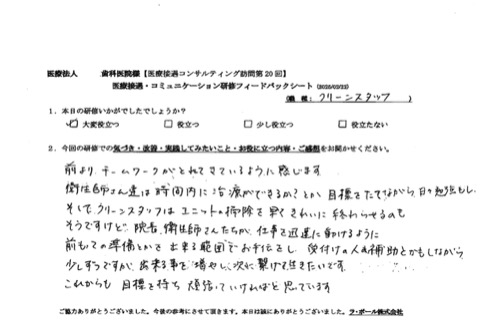 医療法人 歯科医院様【医療接遇コンサルティング訪問第20回】
医療接遇・コミュニケーション研修フィードバックシート (2020/03/23)
(職 種: クリーンスタッフ )
1.本日の研修いかがでしたでしょうか?
☑ 大変役立つ □ 役立つ □ 少し役立つ □ 役立たない
2.今回の研修での気づき・改善・実践してみたいこと・お役に立つ内容・ご感想をお聞かせください。
前より、チームワークがとれてきているように感じます
衛生師さん達は時間内に治療ができるか?とか 目標をたてながら、日々勉強もし、
そして、クリーンスタッフは ユニットの掃除を早くきれいに 終わらせるのも
そうですけど、院長、衛生師さんたちが、仕事を迅速に動けるように
前もっての準備とかを 出来る範囲でお手伝をし、受付けの人の補助とかもしながら
少しずつですが、出来る事を増やし、次に繋げて生きたいです。
これからも 目標を持ち 頑張っていければと思っています
ご協力ありがとうございました。今後の参考にさせて頂きます。本日は誠にありがとうございました。ラ・ポール株式会社